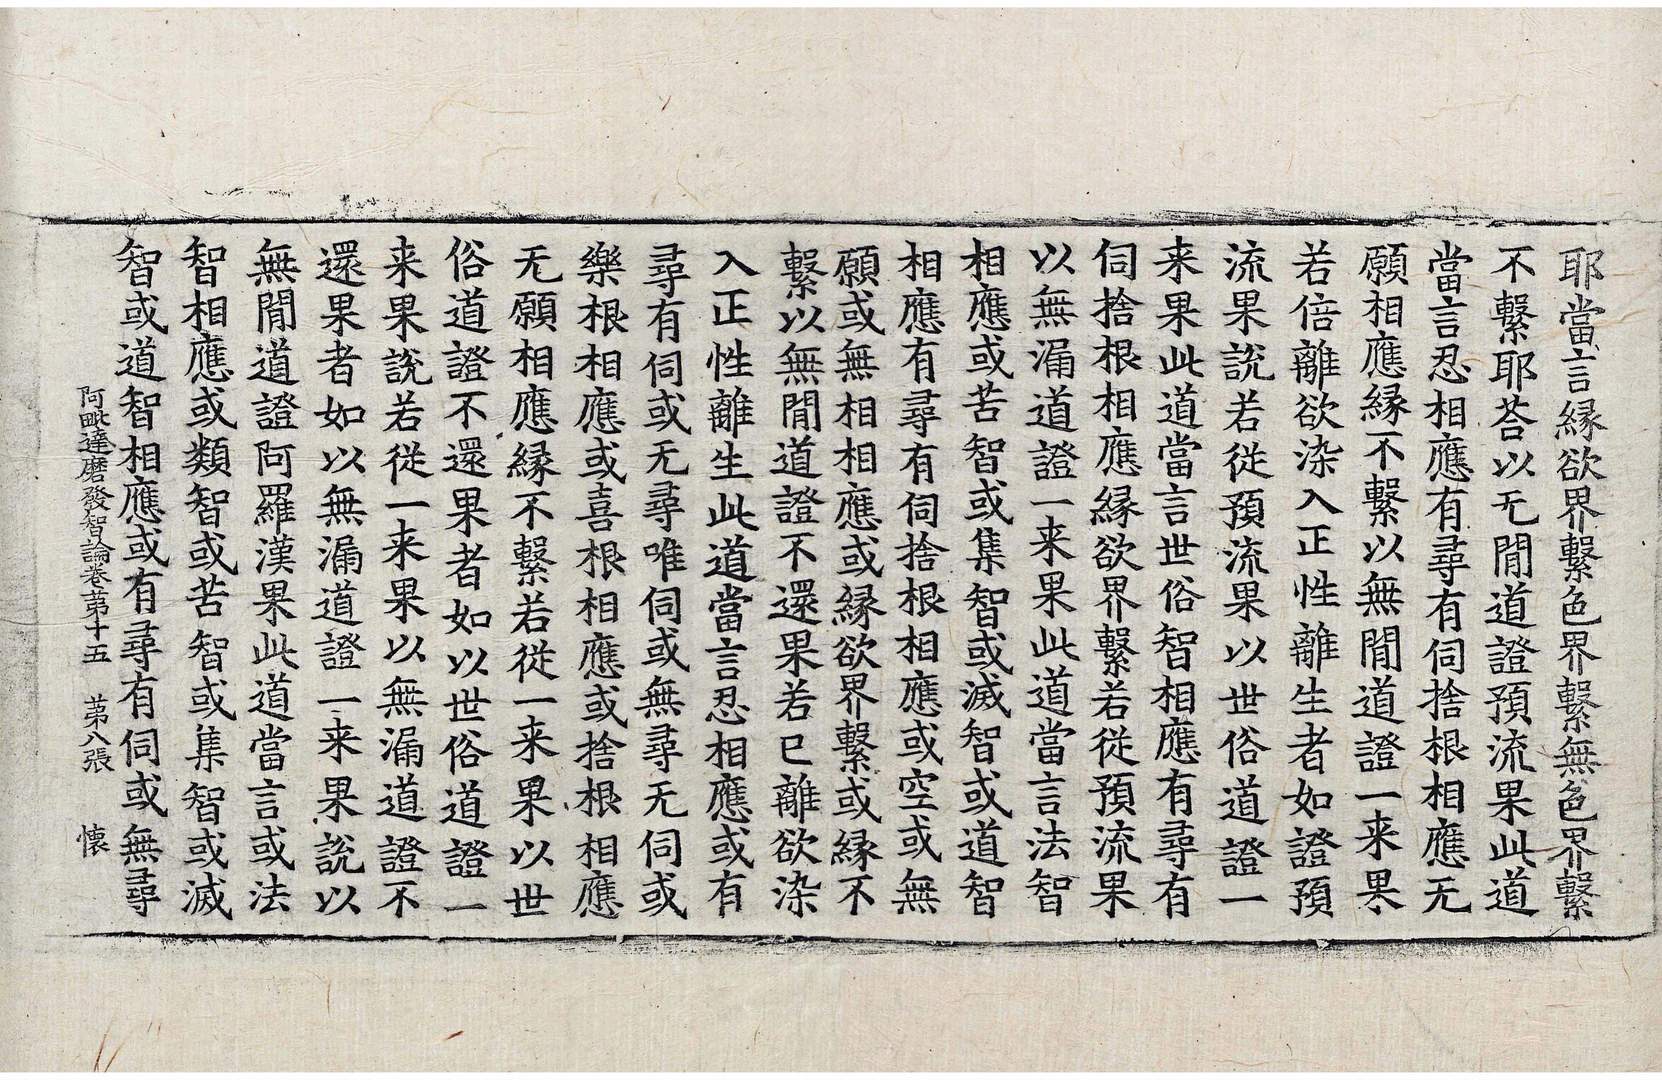 耶當言縁欲界繫色界繫無色界繫
不繫耶荅以无間道證預流果此道
當言忍相應有尋有伺捨根相應无
願相應縁不繫以無間道證一来果
若倍離欲染入正性離生者如證預
流果說若從預流果以世俗道證一
来果此道當言世俗智相應有尋有
伺捨根相應縁欲界繫若從預流果
以無漏道證一来果此道當言法智
相應或苦智或集智或滅智或道智
相應有尋有伺捨根相應或空或無
願或無相相應或縁欲界繫或縁不
繫以無間道證不還果若已離欲染
入正性離生此道當言忍相應或有
尋有伺或无尋唯伺或無尋无伺或
樂根相應或喜根相應或捨根相應
无願相應縁不繫若從一来果以世
俗道證不還果者如以世俗道證一
来果說若從一来果以無漏道證不
還果者如以無漏道證一来果說以
無間道證阿羅漢果此道當言或法
智相應或類智或苦智或集智或滅
智或道智相應或有尋有伺或無尋
阿毗達磨發智論卷苐十五 苐八張 懐